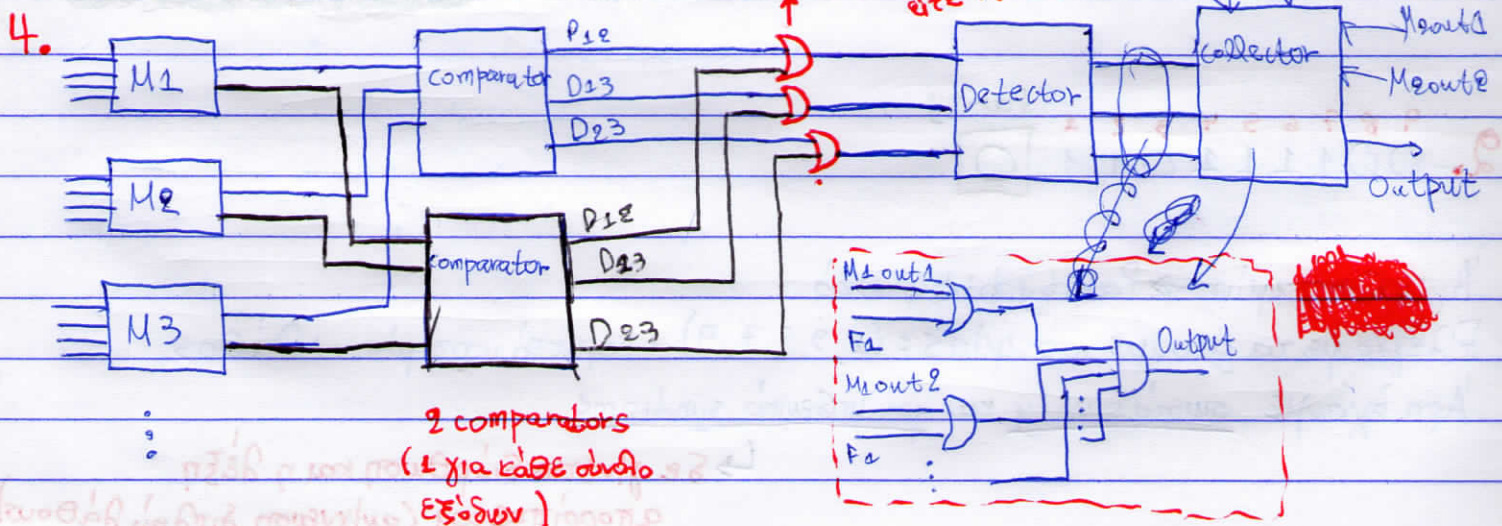 4.
M1
M2
M3
comparator
P12
D13
D23
comparator
D12
D13
D23
2 comparators
(1 για κάθε σύνολο
εξόδων)
Detector
Collector
M2out1
M2out2
Output
M1 out1
F1
M1 out2
F1
Output